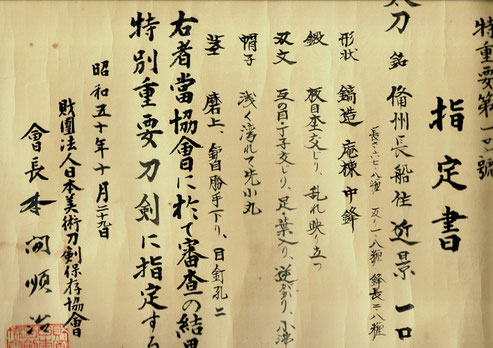 特重要第一四號
指定書
太刀 銘 備州長船住近景 一口
反り一・八糎 鋒長二・八糎
形状 鎬造 庵棟 中鋒
鍛 板目杢交じり、乱れ映り立つ
刃文 互の目・丁子交じり、足・葉入り、逆がかり、小沸
帽子 浅く湾れて先小丸
茎 磨上、鑢目勝手下り、目釘孔二
右者當協會に於て審査の結果
特別重要刀剣に指定する
昭和五十年十月二十九日
財團法人日本美術刀剣保存協會
會長 本間順治